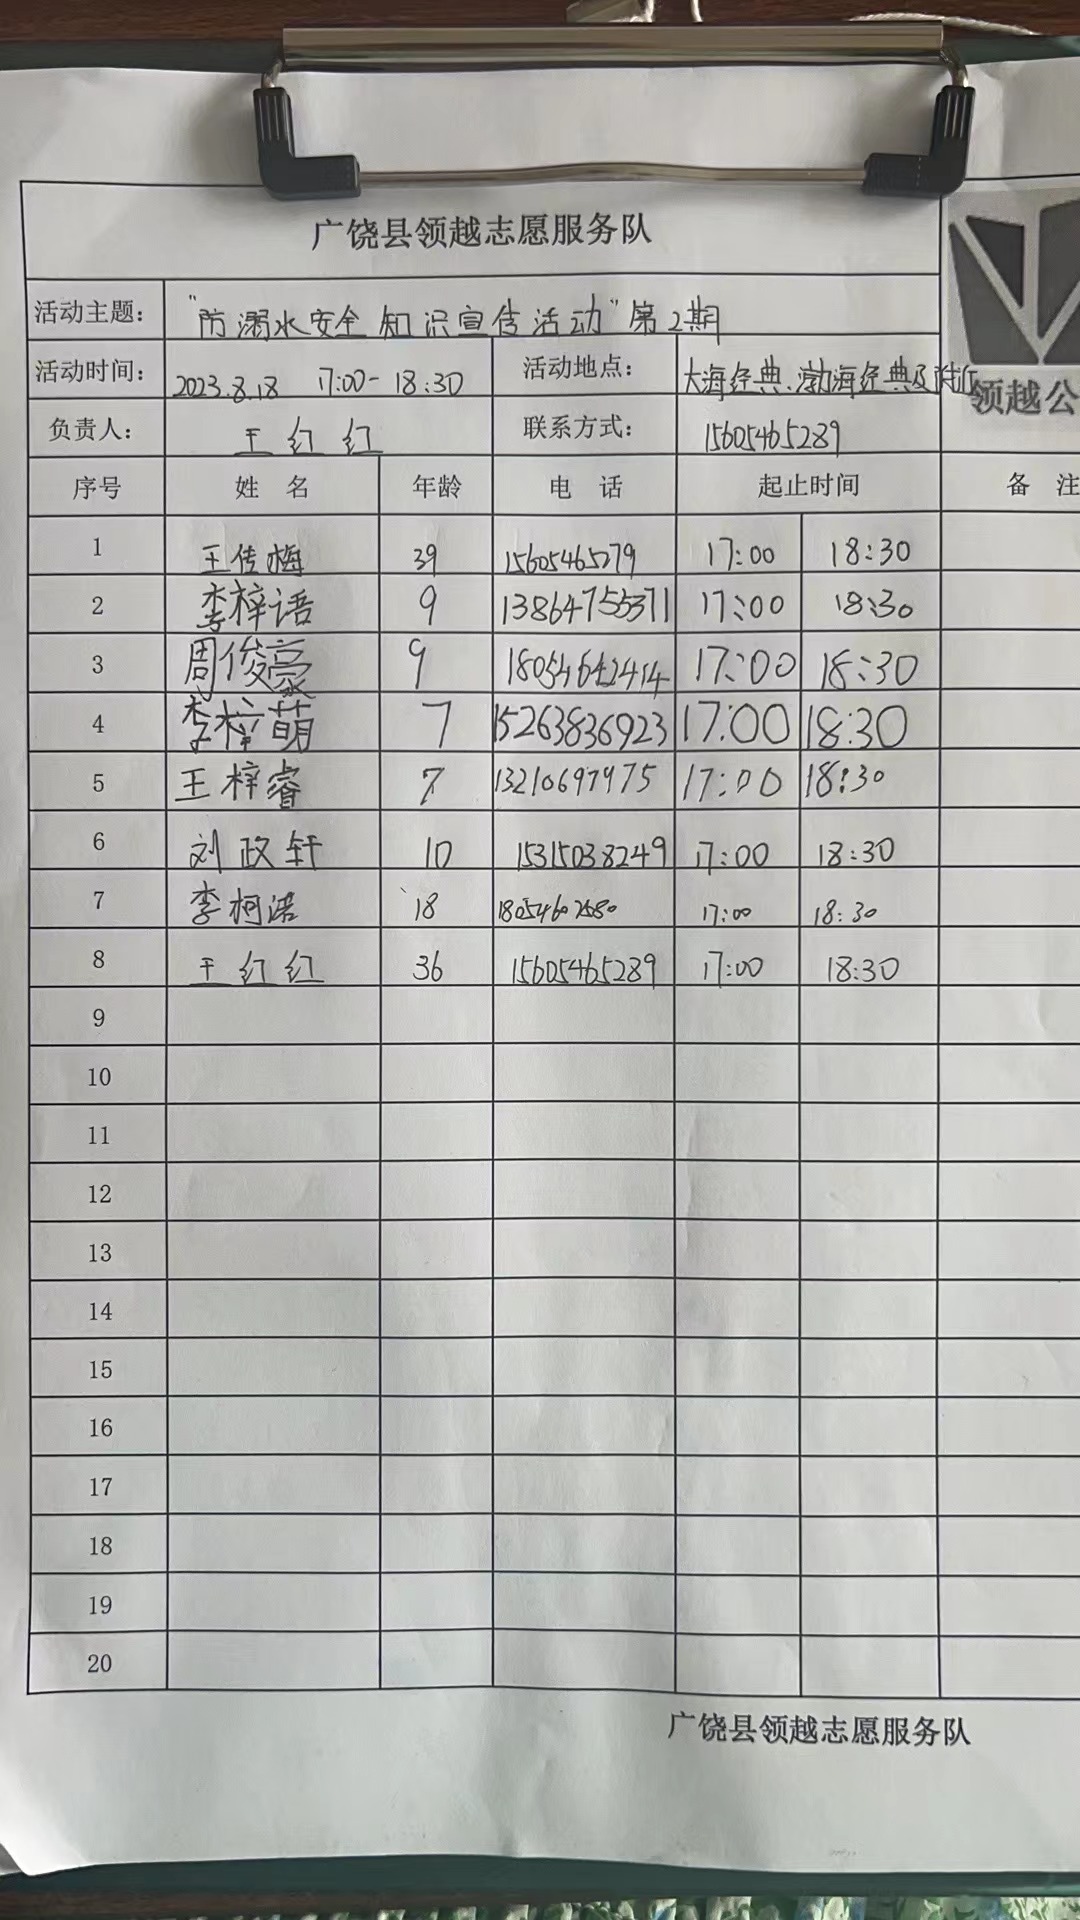 广饶县领越志愿服务队
活动主题： “防溺水安全知识宣传活动”第2期
活动时间： 2023.8.18 17:00-18:30 活动地点： 大海经典、渤海经典及附近
领越公
负责人： 王红红 联系方式： 15605465289
序号 姓 名 年龄 电 话 起止时间 备 注
1 王传梅 39 15605465279 17:00 18:30
2 李梓语 9 13864755371 17:00 18:30
3 周俊豪 9 18054642414 17:00 18:30
4 李梓萌 7 15263836923 17:00 18:30
5 王梓睿 7 13210697975 17:00 18:30
6 刘政轩 10 15315038249 17:00 18:30
7 李柯诺 18 17:00 18:30
8 王红红 36 15605465289 17:00 18:30
9
10
11
12
13
14
15
16
17
18
19
20
广饶县领越志愿服务队